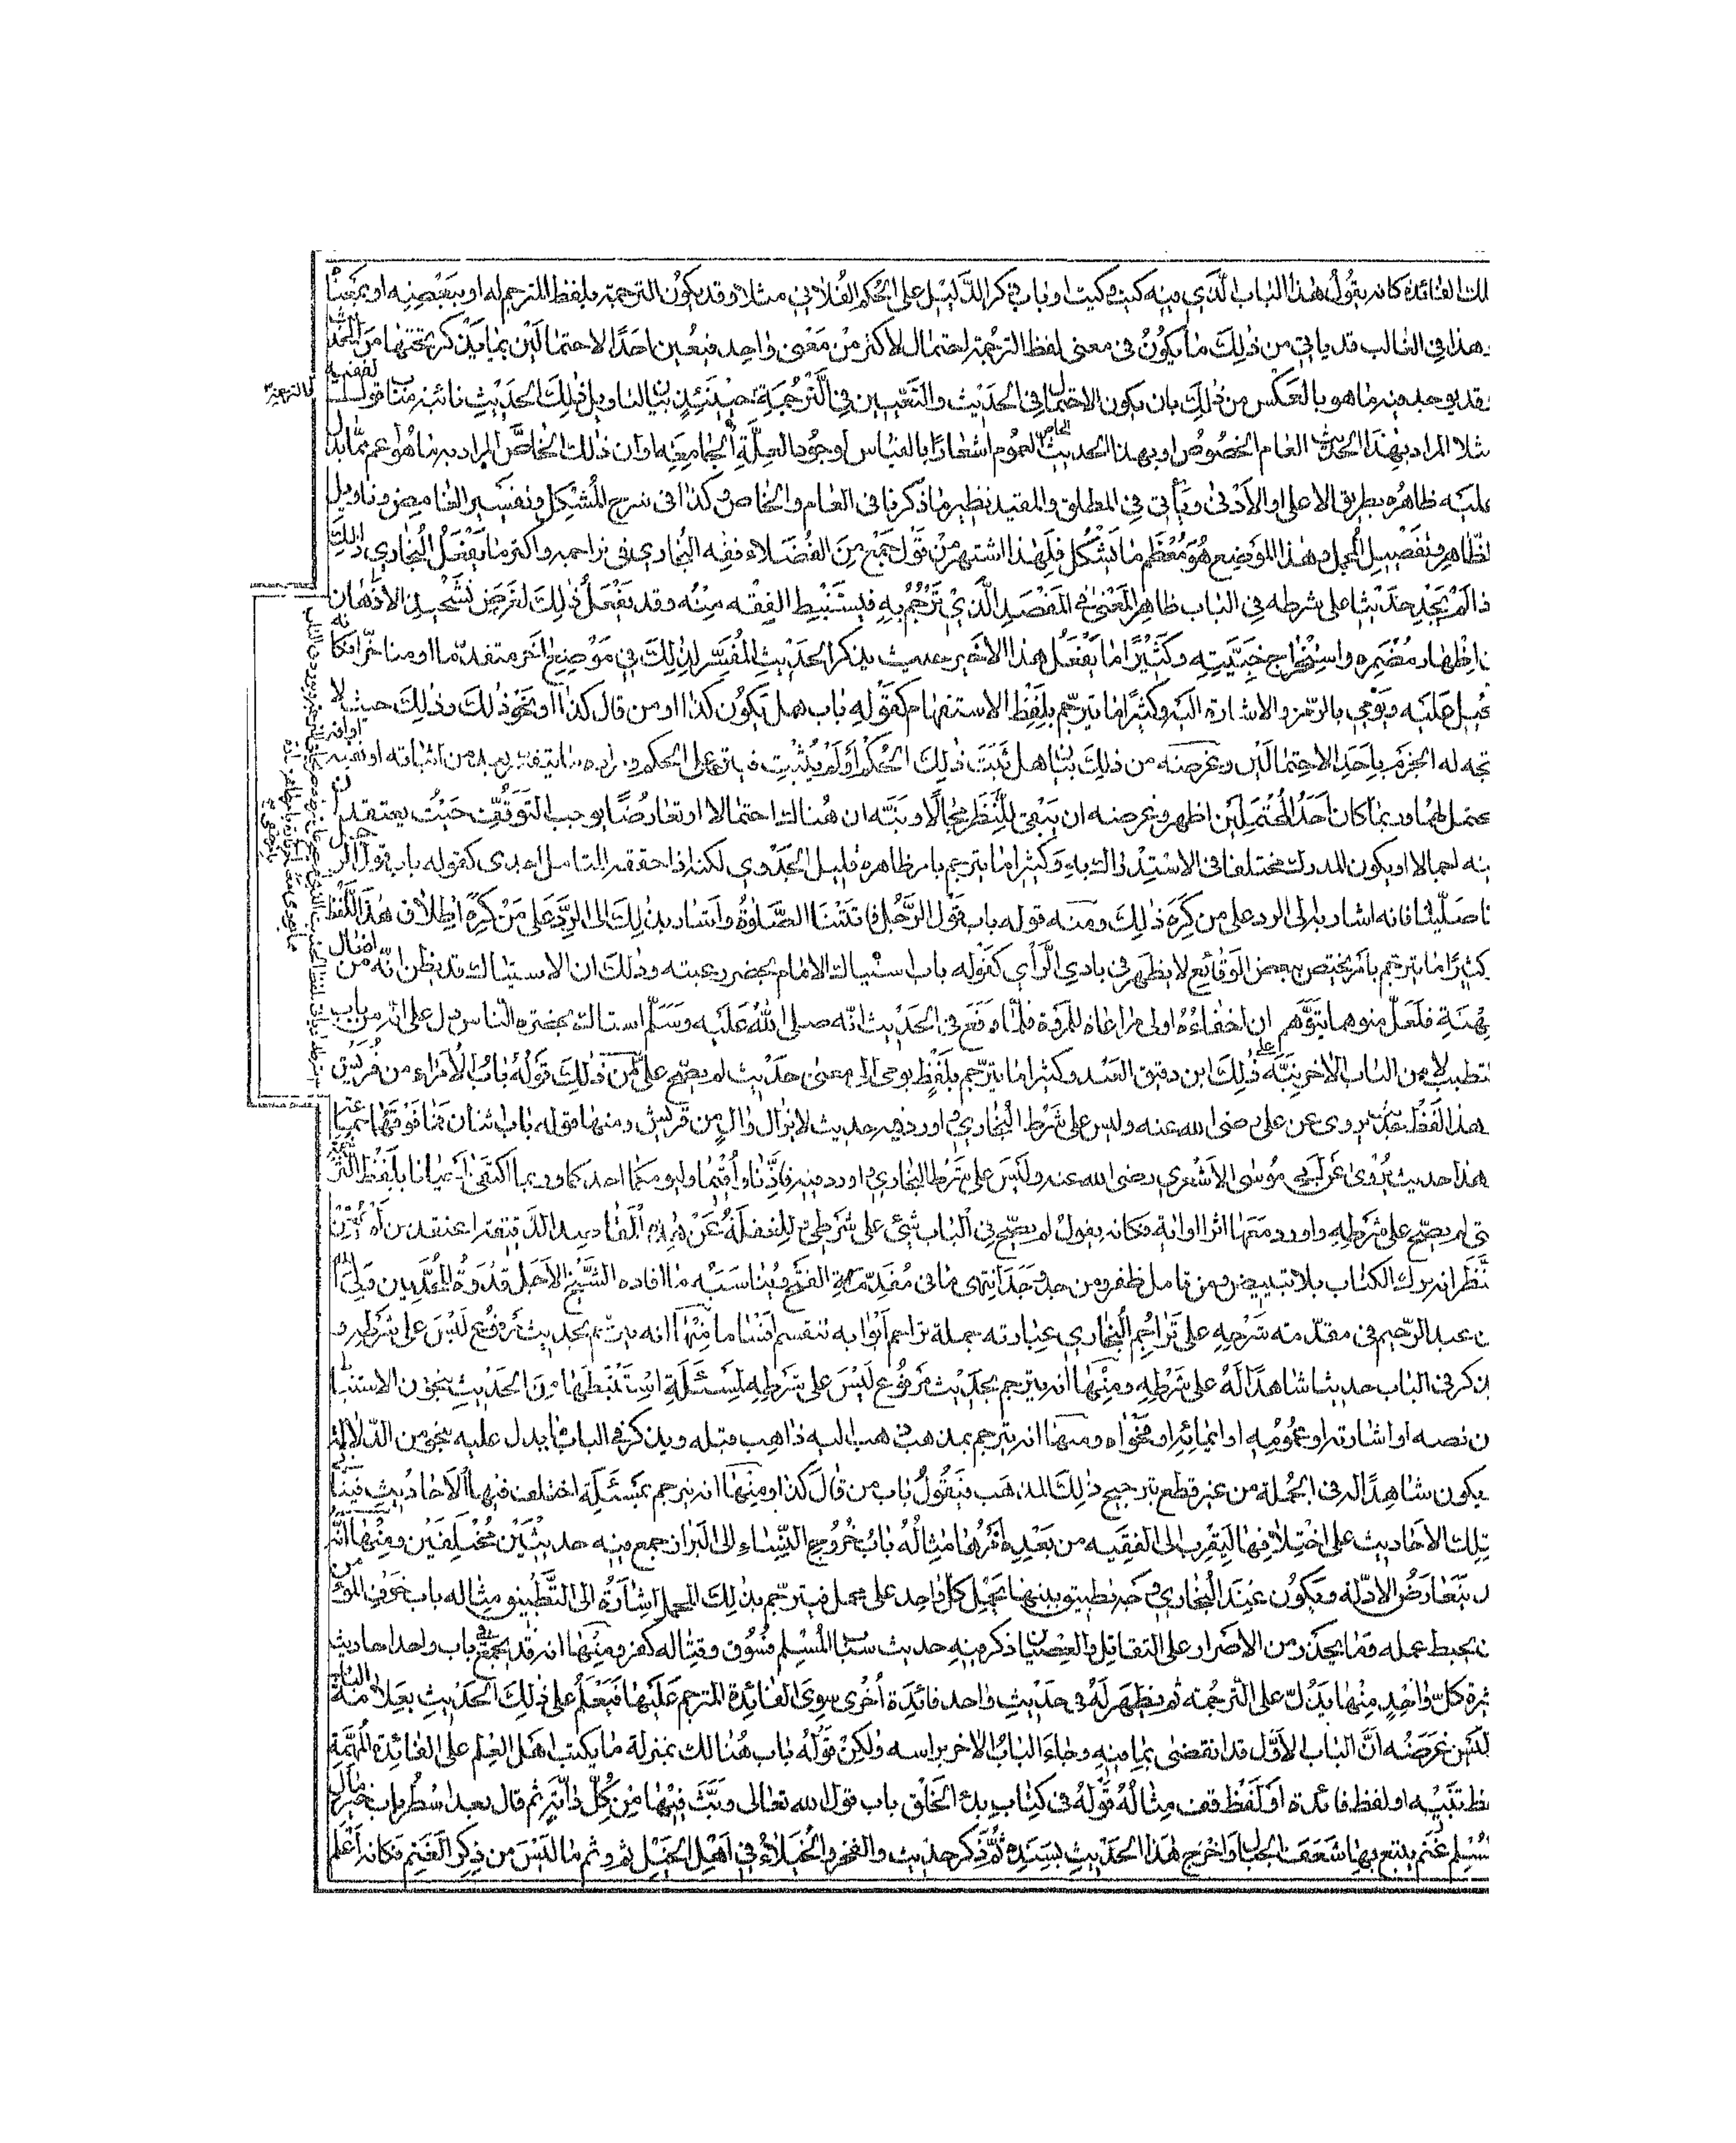 لك الفائدة كانه يقول هذا الباب الذي فيه كيت وكيت او باب ذكر الدليل على الحكم الفلاني مثلا وقد يكون الترجمة بلفظ المترجم له او ببعضه او بمعناه
وهذا في الغالب قد ياتي من ذلك ما يكون في معنى لفظ الترجمة احتمال لاكثر من معنى واحد فيعين احد الاحتمالين بما يذكر تحتها من الحديث
وقد يوجد فيه ما هو بالعكس من ذلك بان يكون الاحتمال في الحديث والتعيين في الترجمة حينئذ بيانا لتاويل ذلك الحديث نائبة مناب قول الفقيه
مثلا المراد بهذا الحديث العام الخصوص او بهذا الحديث الخاص العموم اشعارا بالقياس لوجود العلة الجامعة او ان ذلك الخاص المراد به ما هو اعم مما يدل
عليه ظاهره بطريق الاعلى او الادنى وياتي في المطلق والمقيد نظير ما ذكرنا في العام والخاص وكذا في شرح المشكل وتفسير الغامض وتاويل
لظاهر وتفصيل المجمل وهذا الموضع هو معظم ما يشكل فلهذا اشتهر من قول جمع من الفضلاء فقه البخاري في تراجمه واكثر ما يفعل البخاري ذلك
ذا لم يجد حديثا على شرطه في الباب ظاهر المعنى في المقصد الذي ترجم به فيستنبط الفقه منه وقد يفعل ذلك لغرض تشحيذ الاذهان
في اظهار مضمره واستخراج خبيئته وكثيرا ما يفعل هذا الاخير حيث يذكر الحديث المفسر لذلك في موضع آخر متقدما او متاخرا فكانه
يحيل عليه ويومي بالرمز والاشارة اليه وكثيرا ما يترجم بلفظ الاستفهام كقوله باب هل يكون كذا او من قال كذا او نحو ذلك وذلك حيث لا
يتجه له الجزم باحد الاحتمالين وغرضه من ذلك بيان هل ثبت ذلك الحكم او لم يثبت فيترجم على الحكم ومراده ما يتفسر بعد من اثباته او نفيه او انه
محتمل لهما وربما كان احد المحتملين اظهر وغرضه ان يبقى للنظر مجالا وينبه ان هنالك احتمالا او تعارضا يوجب التوقف حيث يعتقد ان
فيه اجمالا او يكون المدرك مختلفا في الاستدلال به وكثيرا ما يترجم بامر ظاهره قليل الجدوى لكنه اذا حققه المتامل اجدى كقوله باب قول الرجل
ما صلينا فانه اشار به الى الرد على من كره ذلك ومنه قوله باب قول الرجل فاتتنا الصلوة واشار بذلك الى الرد على من كره اطلاق هذا اللفظ
وكثيرا ما يترجم بامر يختص ببعض الوقائع لا يظهر في بادي الراي كقوله باب استياك الامام بحضرة رعيته وذلك ان الاستياك قد يظن انه من افعال
المهنة فلعل متوهما يتوهم ان اخفاءه اولى مراعاة للمروة فلما وقع في الحديث انه صلى الله عليه وسلم استاك بحضرة الناس دل على انه من باب
التطيب لا من الباب الآخر نبه على ذلك ابن دقيق العيد وكثيرا ما يترجم بلفظ يومي الى معنى حديث لم يصح على شرطه من ذلك قوله باب الامراء من قريش
وهذا لفظ حديث يروى عن علي رضي الله عنه وليس على شرط البخاري واورد فيه حديث لا يزال وال من قريش ومنها قوله باب اثنان فما فوقهما جماعة
وهذا حديث يروى عن ابي موسى الاشعري رضي الله عنه وليس على شرط البخاري واورد فيه فاذنا واقيما وليؤمكما احدكما وربما اكتفى احيانا بلفظ الترجمة
التي لم يصح على شرطه واورد معها اثرا او اية فكانه يقول لم يصح في الباب شئ على شرطي للغفلة عن هذه المقاصد الدقيقة اعتقد من لم يمعن
النظر انه ترك الكتاب بلا تبييض ومن تامل ظفر ومن جد وجد انتهى ما في مقدمة الفتح ويناسبه ما افاده الشيخ الاجل قدوة المحدثين ولي الله
بن عبد الرحيم في مقدمة شرحه على تراجم البخاري عبارته جملة تراجم ابوابه تنقسم اقساما منها انه يترجم بحديث مرفوع ليس على شرطه و
يذكر في الباب حديثا شاهدا له على شرطه ومنها انه يترجم بحديث مرفوع ليس على شرطه لمسئلة استنبطها من الحديث بنحو من الاستنباط
من نصه او اشارته او عمومه او ايمائه او فحواه ومنها انه يترجم بمذهب ذهب اليه ذاهب قبله ويذكر في الباب ما يدل عليه بنحو من الدلالة
ويكون شاهدا له في الجملة من غير قطع بترجيح ذلك المذهب فيقول باب من قال كذا ومنها انه يترجم بمسئلة اختلف فيها الاحاديث فياتي
بتلك الاحاديث على اختلافها ليقرب الى الفقيه من بعده امرها مثاله باب خروج النساء الى البراز جمع فيه حديثين مختلفين ومنها انه
قد يتعارض الادلة ويكون عند البخاري وجه تطبيق بينها بحمل كل واحد على محمل فيترجم بذلك المحمل اشارة الى التطبيق مثاله باب خوف المؤمن
ان يحبط عمله وما يحذر من الاصرار على التقاتل والعصيان ذكر فيه حديث سباب المسلم فسوق وقتاله كفر ومنها انه قد يجمع في باب واحد احاديث
كثيرة كل واحد منها يدل على الترجمة ثم يظهر له في حديث واحد فائدة اخرى سوى الفائدة المترجم عليها فيعلم على ذلك الحديث بعلامة الباب
وليس غرضه ان الباب الاول قد انقضى بما فيه وجاء الباب الآخر براسه ولكن قوله باب هنالك بمنزلة ما يكتب اهل العلم على الفائدة المهمة
لفظ تنبيه او لفظ فائدة او لفظ قف مثاله قوله في كتاب بدء الخلق باب قول الله تعالى وبث فيها من كل دابة ثم قال بعد اسطر باب خير مال
المسلم غنم يتبع بها شعف الجبال واخرج هذا الحديث بسنده ثم ذكر حديث والفخر والخيلاء في اهل الخيل ثم وثم ما ليس من ذكر الغنم فكانه اعلم